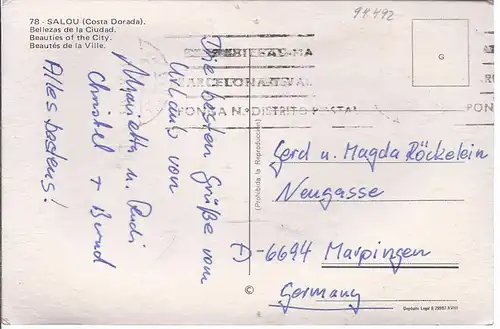 78 - SALOU (Costa Dorada).
Bellezas de la Ciudad.
Beauties of the City.
Beautés de la Ville.
94.492
G
BARCELONA
PONGA N.º DISTRITO POSTAL
PON
Die besten Grüße vom
Urlaub von
Marietta u. Rudi
Christel + Bernd
Alles bestens!
(Prohibida la Reproducción)
©
Gerd u. Magda Röckelein
Neugasse
D-6694 Marpingen
Germany
Depósito Legal B. XVIII